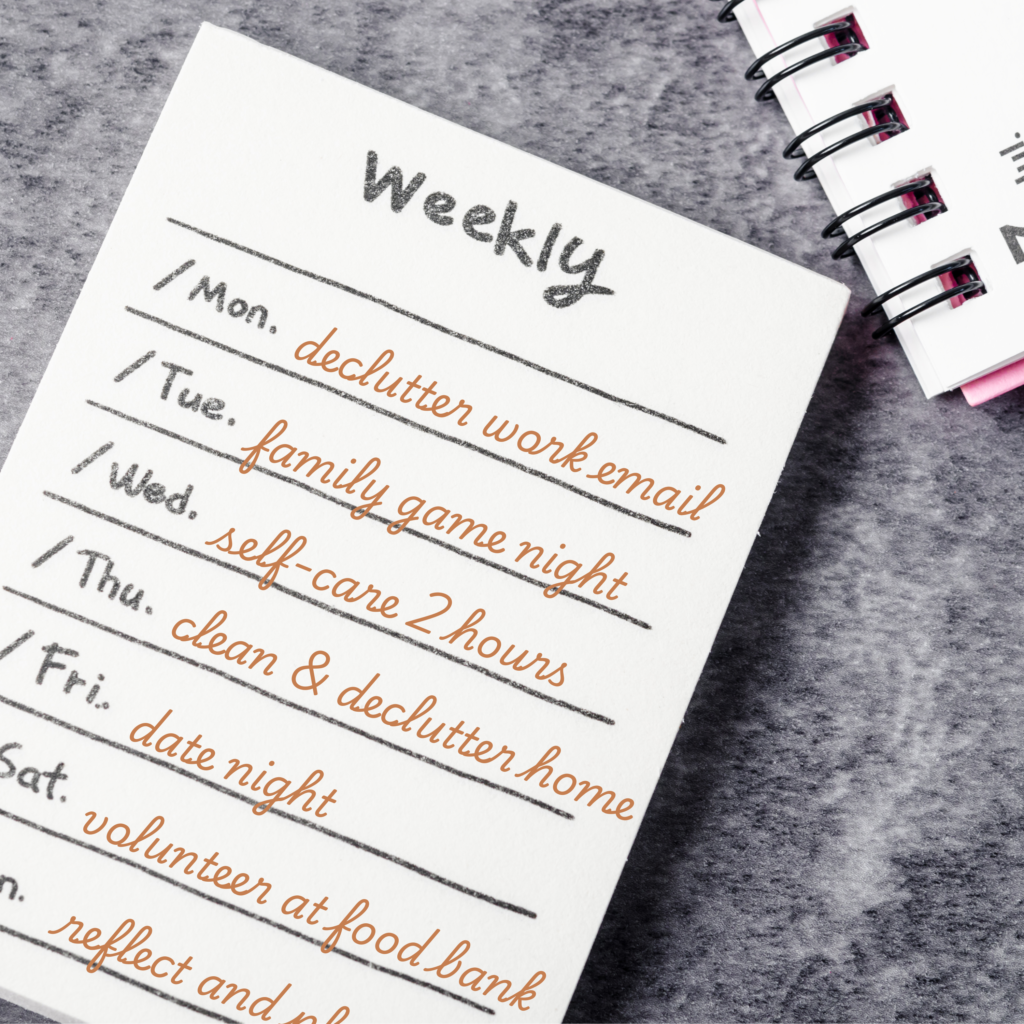 Weekly
/Mon. declutter work email
/Tue. family game night
/Wed. self-care 2 hours
/Thu. clean & declutter home
/Fri.. date night
Sat. volunteer at food bank
reflect and